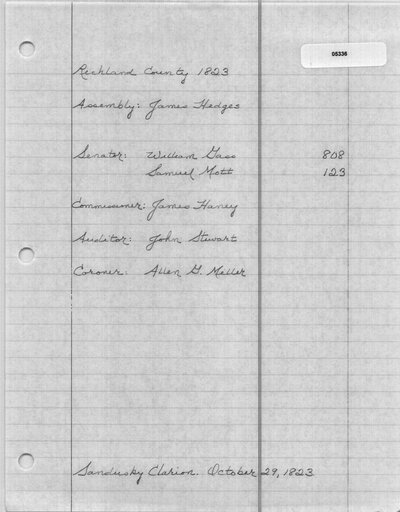 05336
Richland County 1823
Assembly: James Hedges
Senator: William Gass 808
Samuel Mott 123
Commissioner: James Haney
Auditor: John Stewart
Coroner: Allen G. Miller
Sandusky Clarion. October 29, 1823